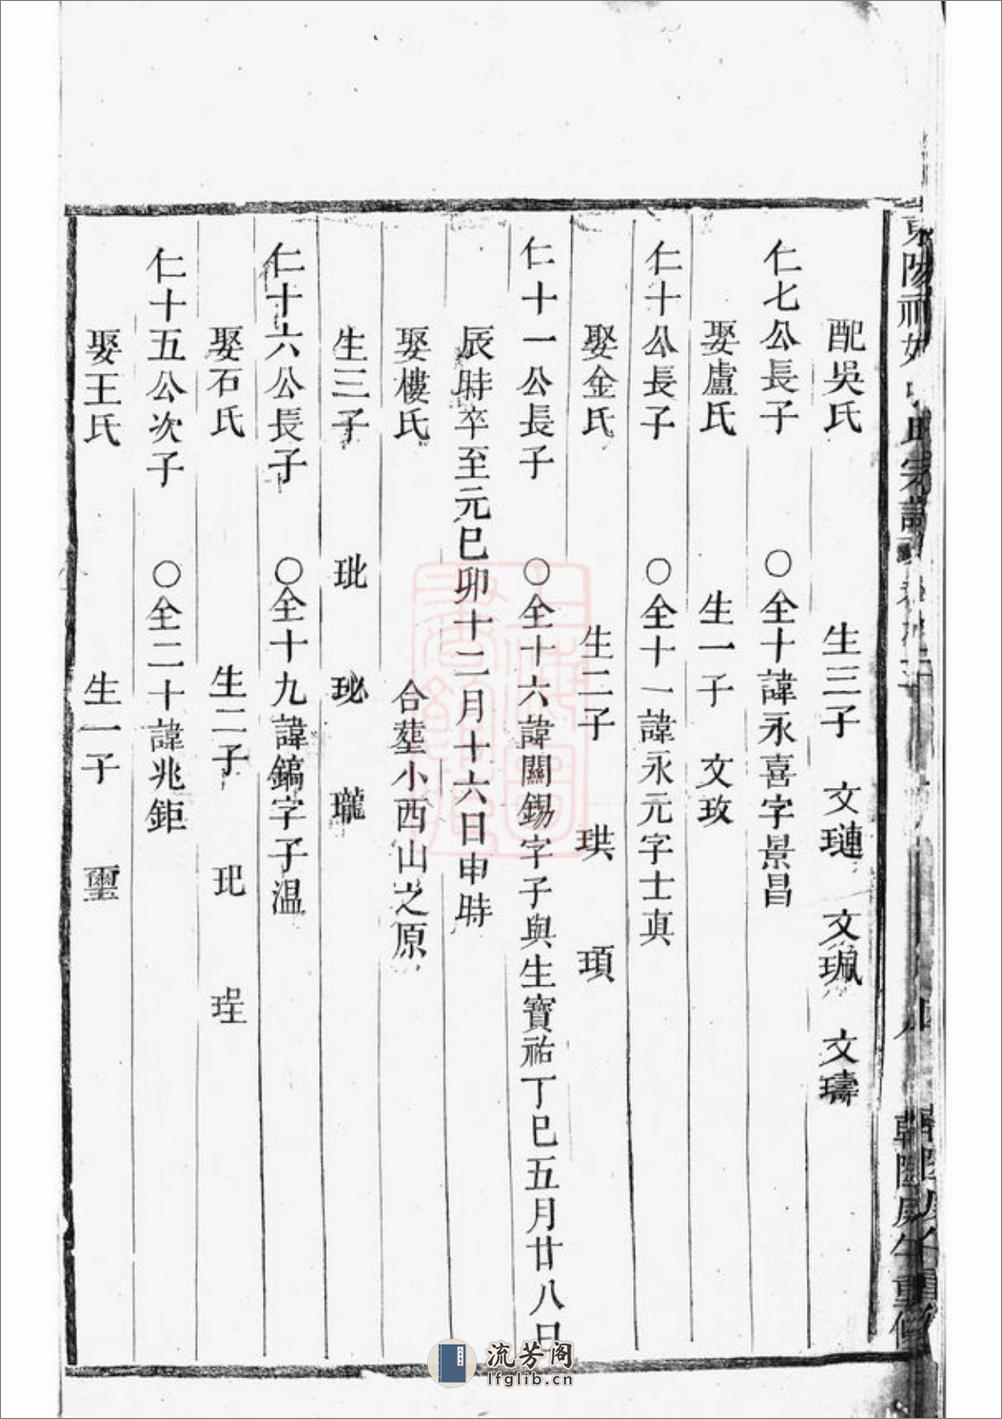 配吳氏　生三子　文璉　文珮　文璹
仁七公長子　○全十諱永喜字景昌
娶盧氏　生一子　文玫
仁十公長子　○全十一諱永元字士真
娶金氏　生二子　珙　頊
仁十一公長子　○全十六諱關錫字子與生寶祐丁巳五月廿八日
辰時卒至元巳卯十二月十六日申時
娶樓氏　合塟小西山之原
生三子　玭　珌　瓏
仁十六公長子　○全十九諱鎬字子温
娶石氏　生二子　玘　珵
仁十五公次子　○全二十諱兆鉅
娶王氏　生一子　璽
流芳阁
lfglib.cn